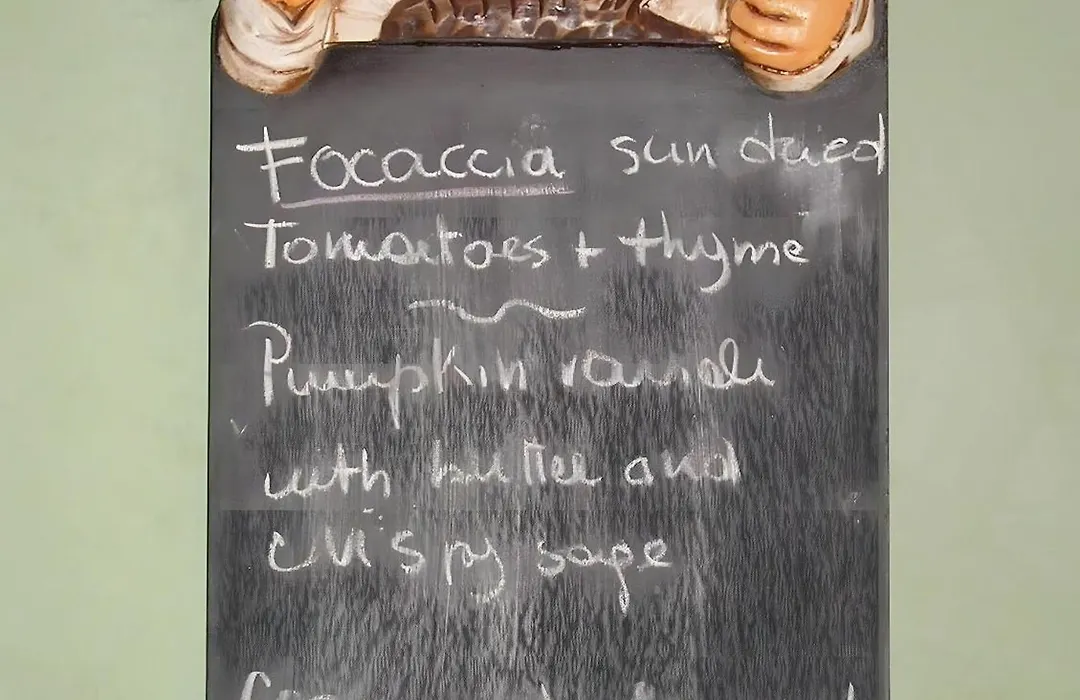 Focaccia sun dried
Tomatoes + thyme
Pumpkin ravioli
with butter and
crispy sage